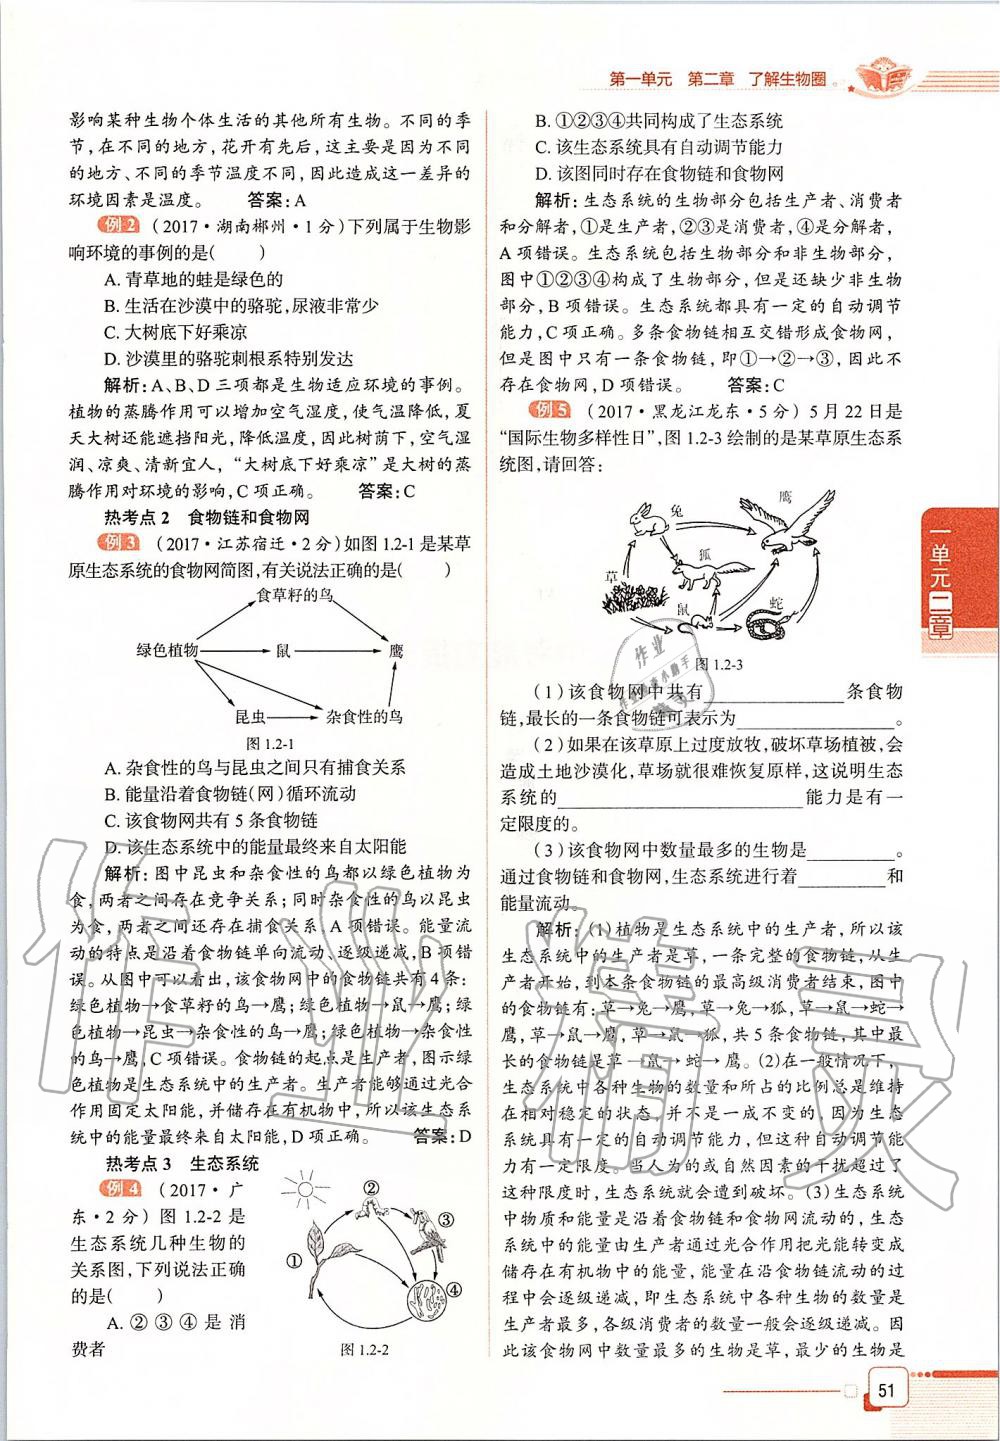 第一单元 第二章 了解生物圈
影响某种生物个体生活的其他所有生物。不同的季
节，在不同的地方，花开有先后，这主要是因为不同
的地方、不同的季节温度不同，因此造成这一差异的
环境因素是温度。 答案：A
例2 (2017·湖南郴州·1分)下列属于生物影
响环境的事例的是( )
A. 青草地的蛙是绿色的
B. 生活在沙漠中的骆驼，尿液非常少
C. 大树底下好乘凉
D. 沙漠里的骆驼刺根系特别发达
解析：A、B、D三项都是生物适应环境的事例。
植物的蒸腾作用可以增加空气湿度，使气温降低，夏
天大树还能遮挡阳光，降低温度。因此树荫下，空气湿
润、凉爽、清新宜人，“大树底下好乘凉”是大树的蒸
腾作用对环境的影响，C项正确。 答案：C
热考点2 食物链和食物网
例3 (2017·江苏宿迁·2分)如图1.2-1是某草
原生态系统的食物网简图，有关说法正确的是( )
食草籽的鸟
绿色植物 鼠 鹰
昆虫 杂食性的鸟
图1.2-1
A. 杂食性的鸟与昆虫之间只有捕食关系
B. 能量沿着食物链(网)循环流动
C. 该食物网共有5条食物链
D. 该生态系统中的能量最终来自太阳能
解析：图中昆虫和杂食性的鸟都以绿色植物为
食，两者之间存在竞争关系；同时杂食性的鸟以昆虫
为食，两者之间还存在捕食关系。A项错误。能量流
动的特点是沿着食物链单向流动、逐级递减，B项错
误。从图中可以看出，该食物网中的食物链共有4条：
绿色植物→食草籽的鸟→鹰；绿色植物→鼠→鹰；绿
色植物→昆虫→杂食性的鸟→鹰；绿色植物→杂食性
的鸟→鹰，C项错误。食物链的起点是生产者，图示绿
色植物是生态系统中的生产者。生产者能够通过光合
作用固定太阳能，并储存在有机物中，所以该生态系
统中的能量最终来自太阳能，D项正确。 答案：D
热考点3 生态系统
例4 (2017·广
东·2分)图1.2-2是
生态系统几种生物的
关系图，下列说法正确
的是( )
A. ②③④是消
费者
①
②
③
④
图1.2-2
B. ①②③④共同构成了生态系统
C. 该生态系统具有自动调节能力
D. 该图同时存在食物链和食物网
解析：生态系统的生物部分包括生产者、消费者
和分解者，①是生产者，②③是消费者，④是分解者，
A项错误。生态系统包括生物部分和非生物部分，
图中①②③④构成了生物部分，但是还缺少非生物
部分，B项错误。生态系统都具有一定的自动调节
能力，C项正确。多条食物链相互交错形成食物网，
但是图中只有一条食物链，即①→②→③，因此不
存在食物网，D项错误。 答案：C
例5 (2017·黑龙江龙东·5分)5月22日是
“国际生物多样性日”，图1.2-3绘制的是某草原生态系
统图，请回答：
鹰
兔
狐
草
鼠
蛇
图1.2-3
(1)该食物网中共有____条食物
链，最长的一条食物链可表示为____。
(2)如果在该草原上过度放牧，破坏草场植被，会
造成土地沙漠化，草场就很难恢复原样，这说明生态
系统的____能力是有一
定限度的。
(3)该食物网中数量最多的生物是____。
通过食物链和食物网，生态系统进行着____和
能量流动。
解析：(1)植物是生态系统中的生产者，所以该
生态系统中的生产者是草，一条完整的食物链，从生
产者开始，到本条食物链的最高级消费者结束，图中
的食物链有：草→兔→鹰，草→兔→狐，草→鼠→蛇→
鹰，草→鼠→鹰，草→鼠→狐，共5条食物链，其中最
长的食物链是草→鼠→蛇→鹰。(2)在一般情况下，
生态系统中各种生物的数量和所占的比例总是维持
在相对稳定的状态，并不是一成不变的，因此生态系
统具有一定的自动调节能力，但这种自动调节能力
有一定限度。当人为的或自然因素的干扰超过了
这种限度时，生态系统就会遭到破坏。(3)生态系统
中物质和能量是沿着食物链和食物网流动的，生态系
统中的能量由生产者通过光合作用把光能转变成
储存在有机物中的能量，能量在沿食物链流动的过
程中会逐级递减，即生态系统中各种生物的数量是
生产者最多，各级消费者的数量一般会逐级递减。因
此该食物网中数量最多的生物是草，最少的生物是
一单元二章
51
作业精灵